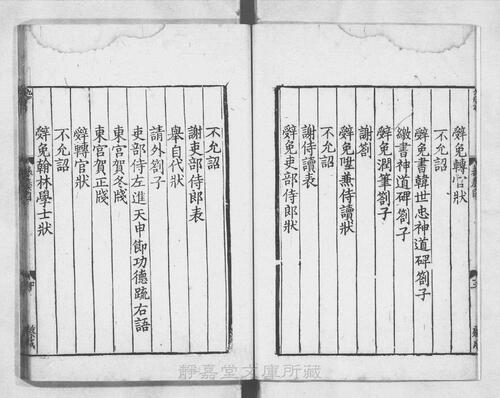 辤免轉官狀
不允詔
辤免書韓世忠神道碑劄子
繳書神道碑劄子
辤免潤筆劄子
謝劄
辤免陞兼侍讀狀
不允詔
謝侍讀表
辤免吏部侍郎狀
不允詔
謝吏部侍郎表
舉自代狀
請外劄子
吏部侍左進天申節功德疏右語
東宮賀冬牋
東宮賀正牋
辤轉官狀
不允詔
辤免翰林學士狀
靜嘉堂文庫所藏